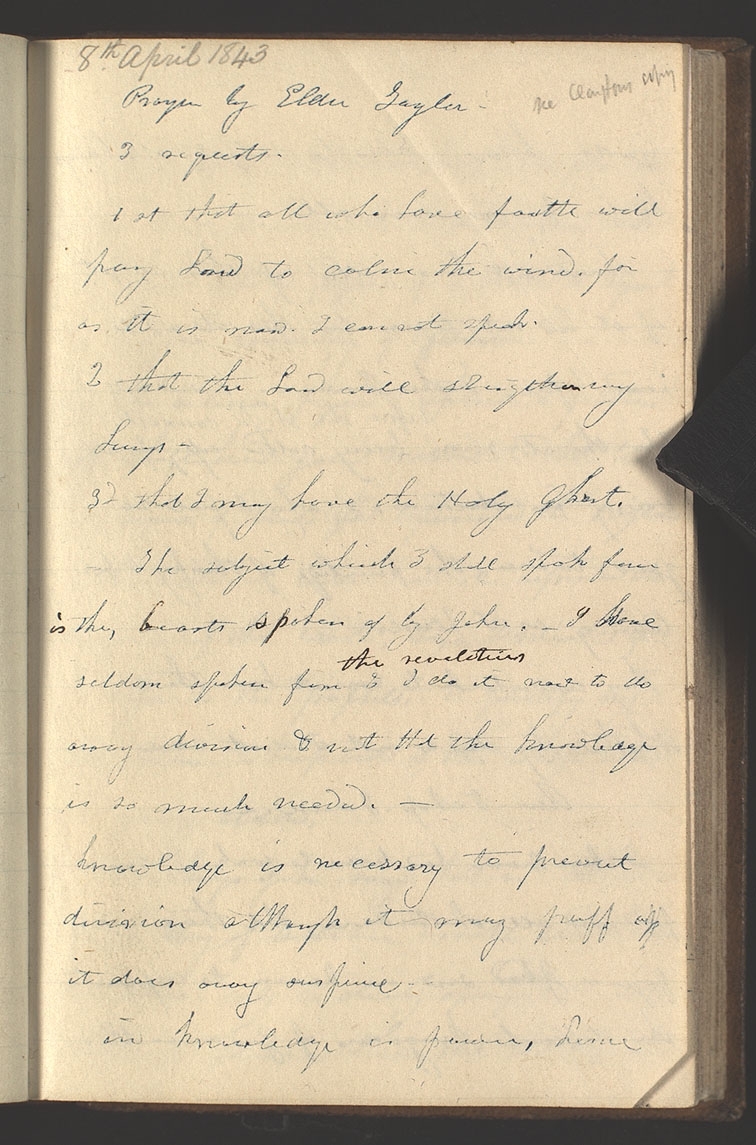 8th April 1843
see Claytons copy
Prayer by Elder Taylor -
3 requests.
1 st that all who have faith will
pray Lord to calm the wind. for
as it is now. I cannot speak.
2 that the Lord will strengthen my
Lungs -
3d that I may have the Holy Ghost.
The subject which I shall speak from
is the, beasts spoken of by John. - I have
seldom spoken from the revelations & I do it now to do
away division & not that the knowledge
is so much needed. —
knowledge is necessary to prevent
division although it may puff up
it does away suspince -
in knowledge is power, hence